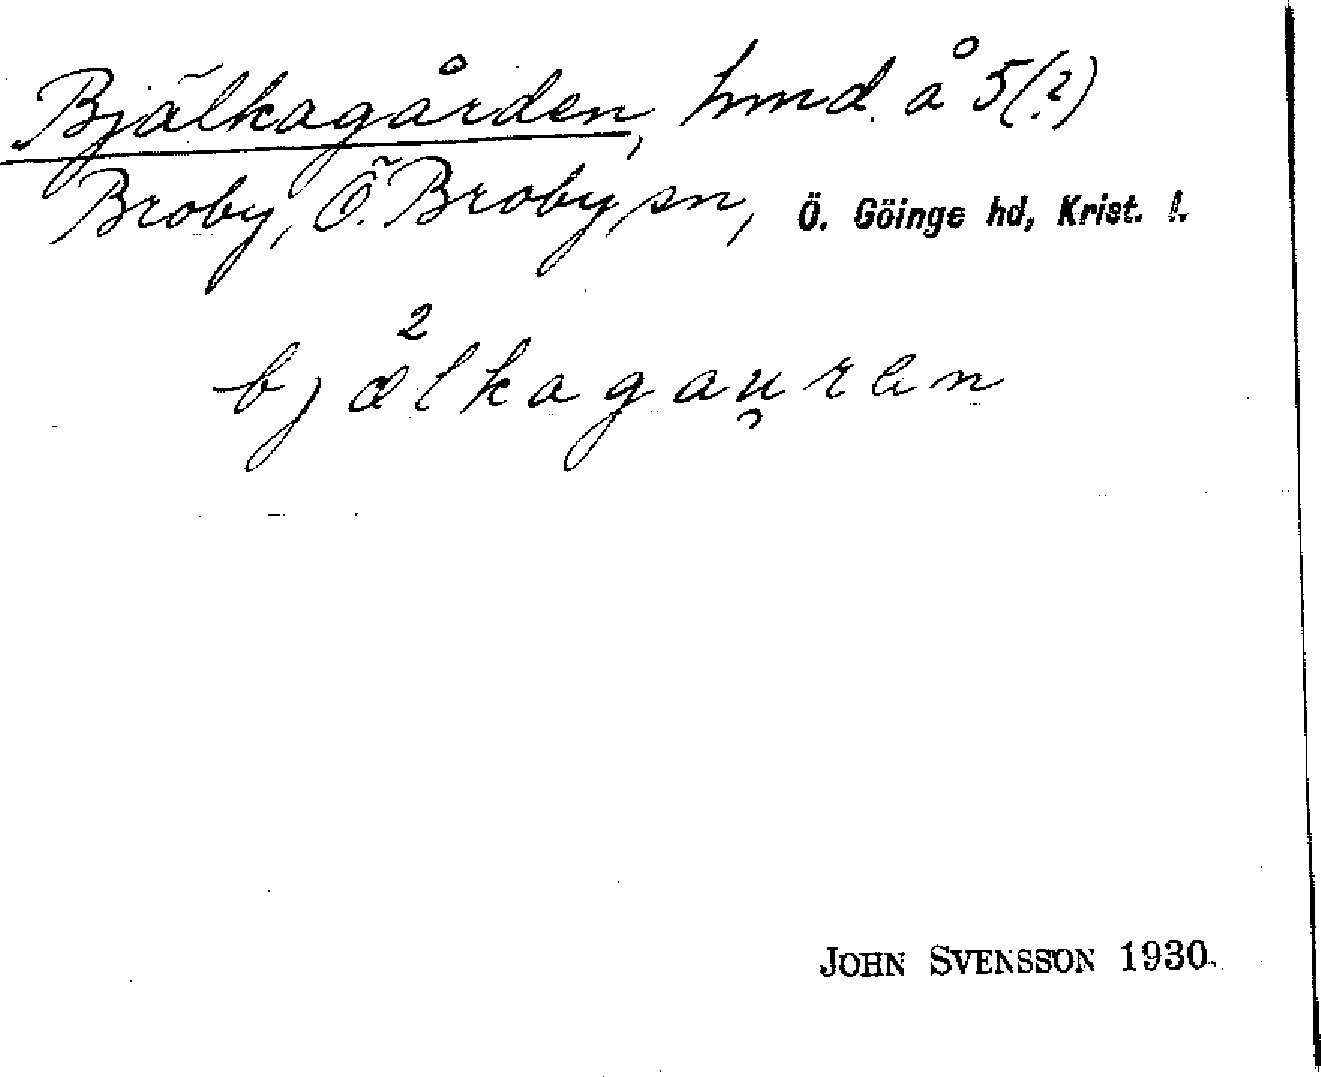 Bjälkagården, hmd. å 5(?)
Broby, Ö. Broby sn, Ö. Göinge hd, Krist. l.
bjæ²lkagau̯ren
JOHN SVENSSON 1930.